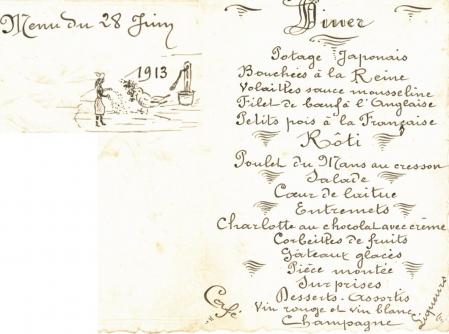 Menu du 28 Juin
1913
Dîner
Potage Japonais
Bouchées à la Reine
Volailles sauce mousseline
Filet de bœuf à l'Anglaise
Petits pois à la Française
Rôti
Poulet du Mans au cresson
Salade
Cœur de laitue
Entremets
Charlotte au chocolat avec crème
Corbeilles de fruits
Gâteaux glacés
Pièce montée
Surprises
Desserts-Assortis
Vin rouge et vin blanc
Champagne
Café
Liqueurs